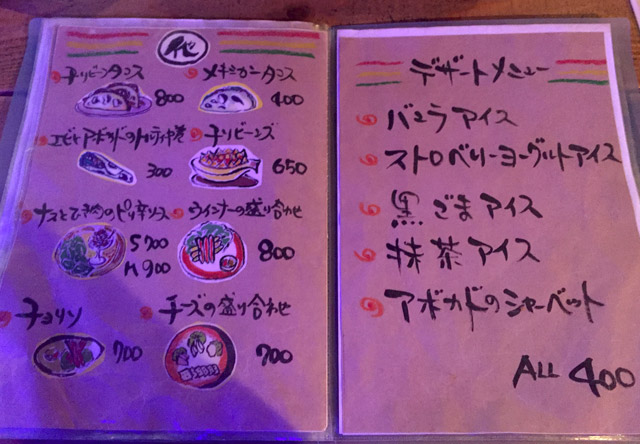 代
チリビーンタコス 800
メキシカンタコス 400
エビとアボカドのトルティヤ巻 300
チリビーンズ 650
ナスとひき肉のピリ辛ソース
S 700
M 900
ウインナーの盛り合わせ 800
チョリソ 700
チーズの盛り合わせ 700
デザートメニュー
バニラアイス
ストロベリーヨーグルトアイス
黒ごまアイス
抹茶アイス
アボカドのシャーベット
ALL 400